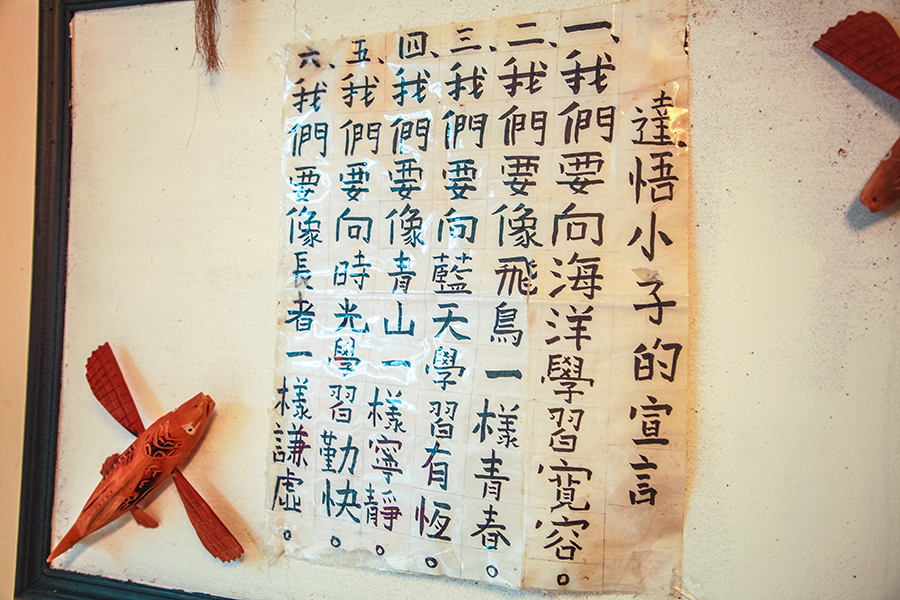 達悟小子的宣言
一、我們要向海洋學習寬容。
二、我們要像飛鳥一樣青春。
三、我們要向藍天學習有恆。
四、我們要像青山一樣寧靜。
五、我們要向時光學習勤快。
六、我們要像長者一樣謙虛。